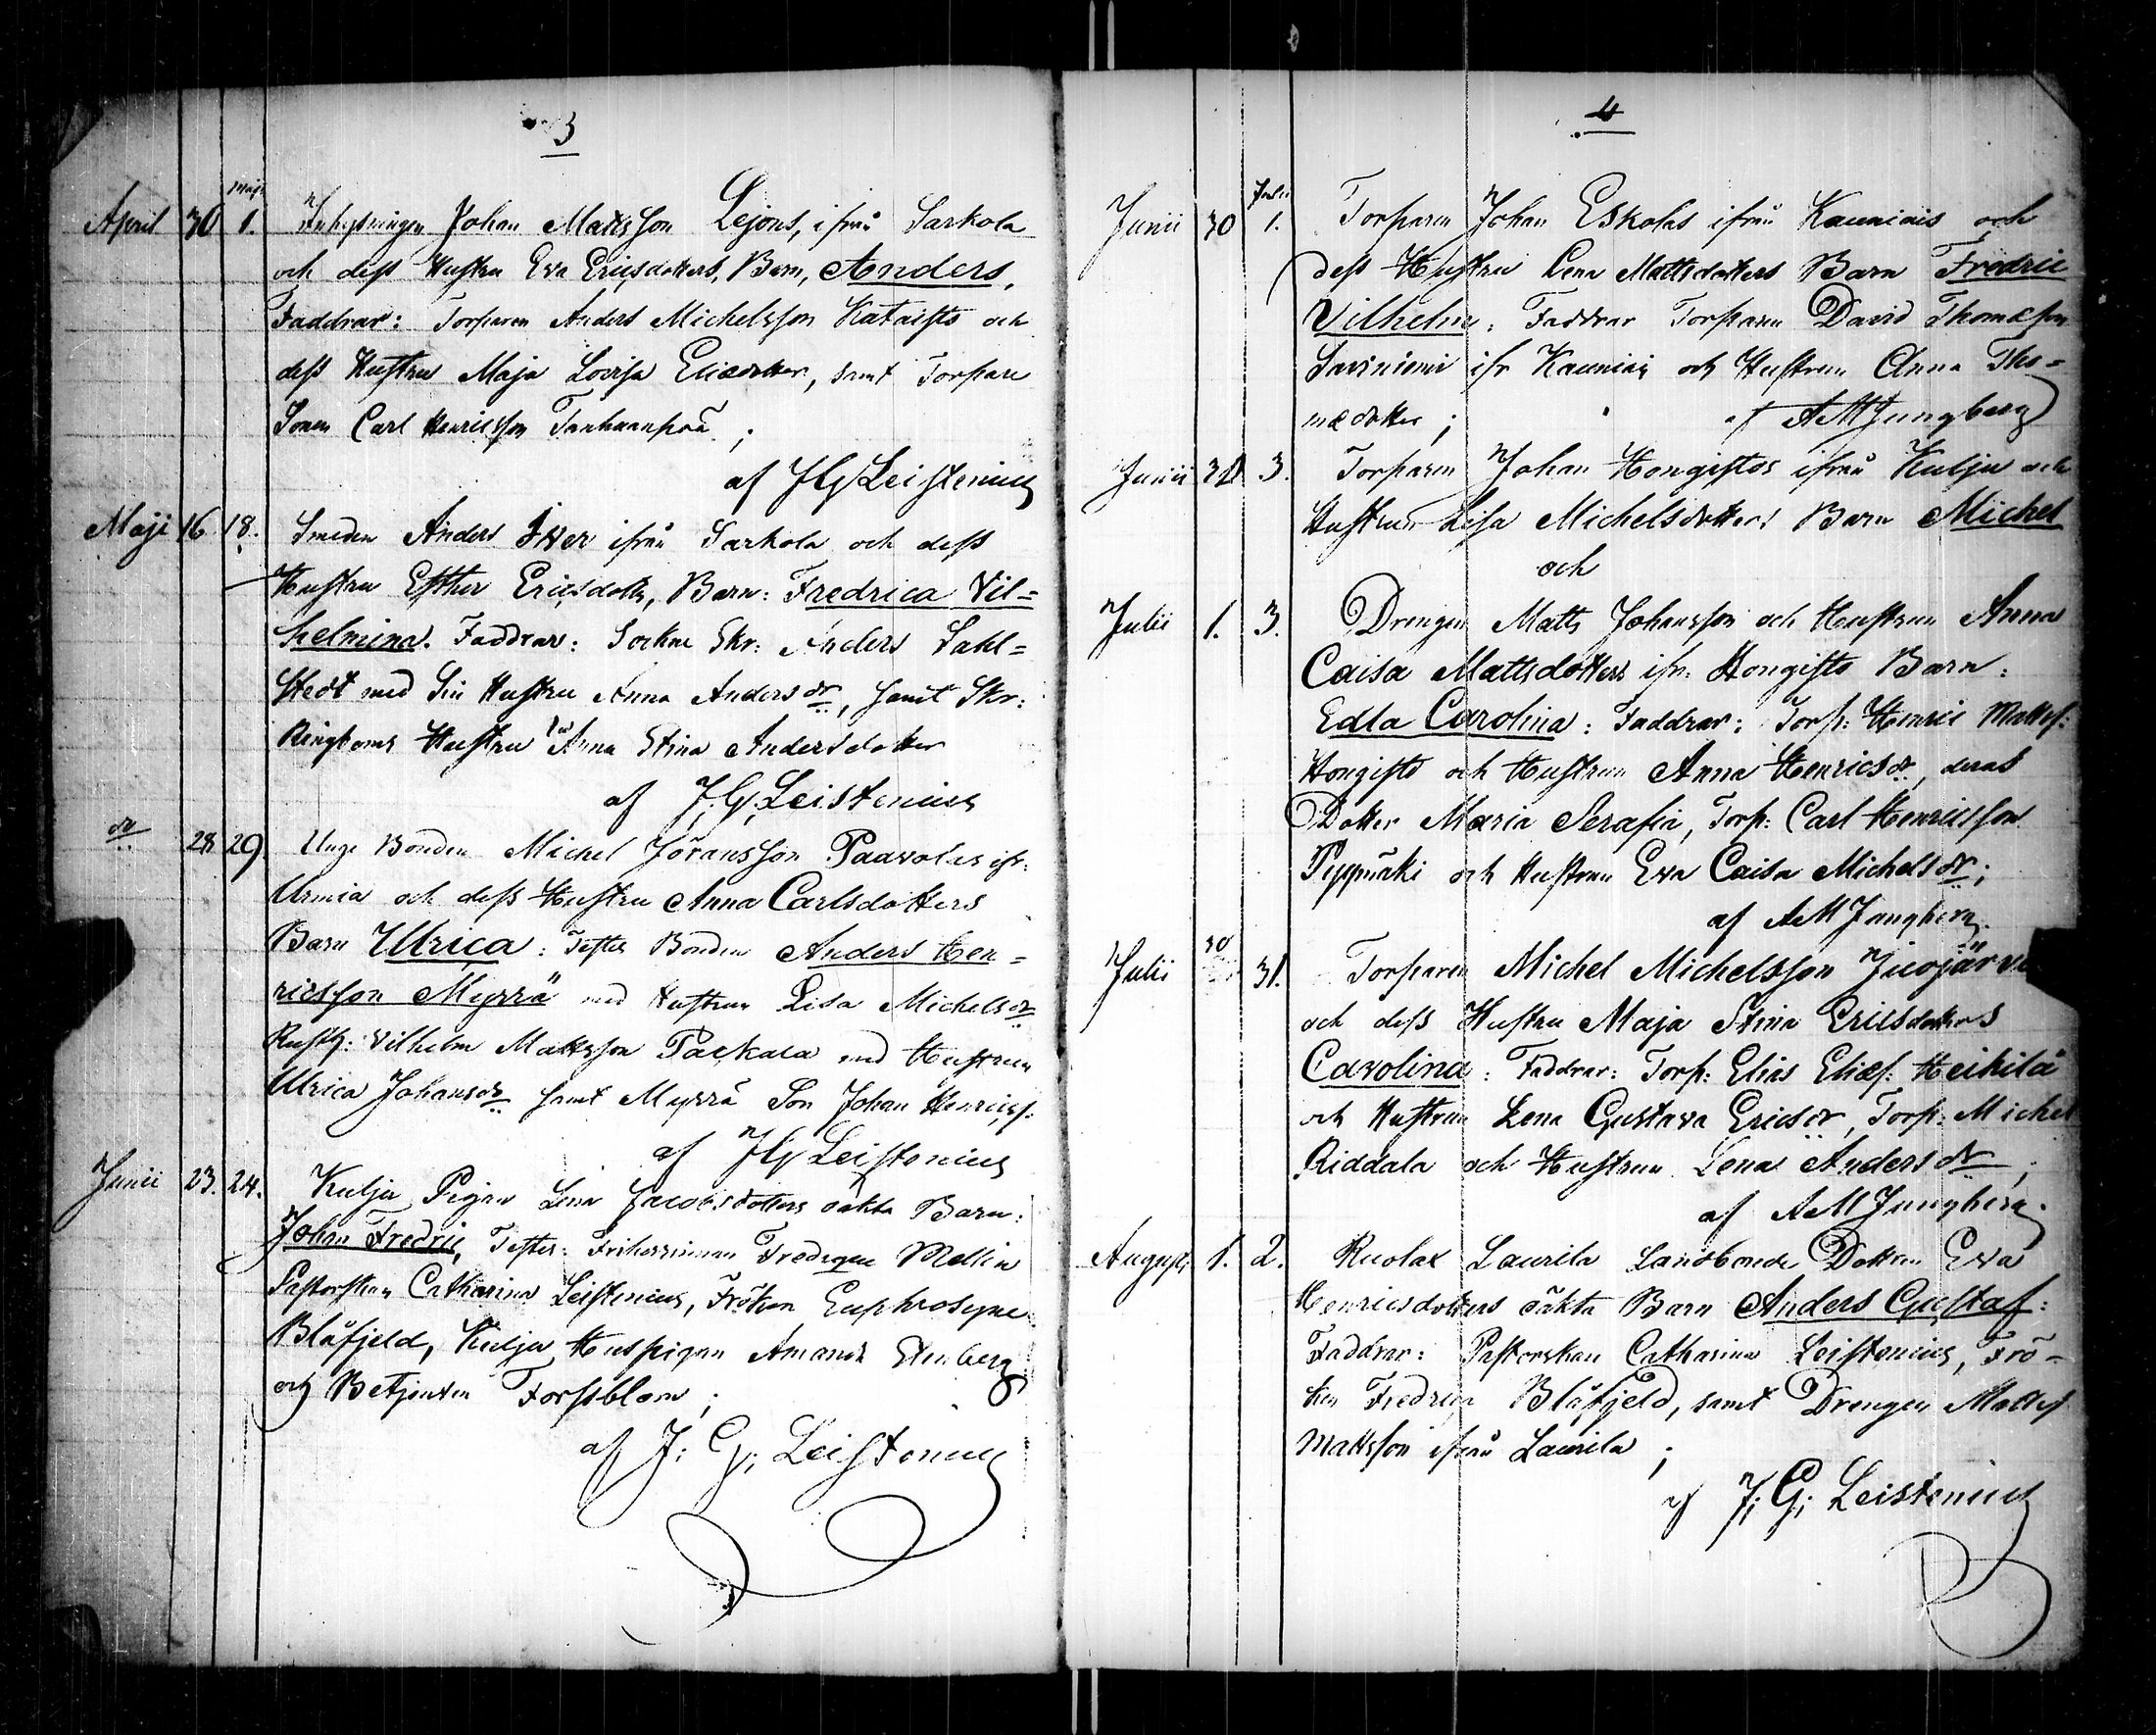 3
Maji
April 30 1. Inhysingen Johan Mattsson Lejons, ifrån Sarkola
och dess Hustru Eva Ericsdotters, Barn, Anders,
Faddrar: Torparen Anders Michelsson Kataisto och
dess Hustru Maja Lovisa Eliædotter, samt Torpare
Sonen Carl Henricsson Tanhuanpää;
af J G Leistenius
Maji 16 18. Smeden Anders Iver ifrån Sarkola och dess
Hustru Esther Ericsdotters, Barn: Fredrica Vil=
helmina. Faddrar: Sockne Skr: Anders Sahl=
stedt med Sin Hustru Anna Anders dr, samt Skr:
Ringboms Hustru Anna Stina Andersdotter
af J. G. Leistenius
dr 28 29 Unge Bonden Michel Jöransson Paavolas ifr:
Urmia och dess Hustru Anna Carlsdotters
Barn Ulrica: Testes Bonden Anders Hen=
ricsson Myrrä med Hustrun Lisa Michels dr
Rusth: Vilhelm Mattsson Packala med Hustrun
Ulrica Johans dr samt Myrrä Son Johan Henricss.
af J G Leistenius
Junii 23. 24. Kulju Pigan Lena Jacobsdotters oäkta Barn:
Johan Fredric, Testes: Friherrinnan Fredrique Mellin
Pastorskan Catharina Leistenius, Fröken Euphrosyne
Blåfjeld, Kulju Huspigan Amanda
och Betjenten Forssblom;
af J: G; Leistenius
4
Julii
Junii 30 1. Torparen Johan Eskolas ifrån Kauniais och
dess Hustru Lena Mattsdotters Barn Fredric
Vilhelm: Faddrar Torparen David Thomæson
Saviniemi ifr Kauniais och Hustrun Anna Tho=
mædotter; af A M Jungberg
Junii 3. Torparen Johan Hongistos ifrån Kulju och
Hustrun Lisa Michelsdotters Barn Michel
och
Julii 1. 3. Drengen Matts Johansson och Hustrun Anna
Caisa Mattsdotters ifr. Hongisto Barn:
Edla Carolina: Faddrar: Torp: Henric Mattss:
Hongisto och Hustrun Anna Henrics dr, deras
Dotter Maria Serafia, Torp: Carl Henricsson
Pyppmäki och Hustrun Eva Caisa Michels dr;
af A M Jungberg.
Julii 30 31. Torparen Michel Michelsson
och dess Hustru Maja Stina Ericsdotters
Carolina: Faddrar: Torp: Elias Eliæs: Heikilä
och Hustrun Lena Gustava Erics dr, Torp: Michel
Riddala och Hustrun Lena Anders dr;
af A M Jungberg.
Augusti 1. 2. Ruolax Laurila Landbonde Dottren Eva
Henricsdotters oäkta Barn Anders Gustaf:
Faddrar: Pastorskan Catharina Leistenius, Frö=
ken Fredrica Blåfjeld, samt Drengen Matts
Mattsson ifrån Laurila;
af J; G; Leistenius